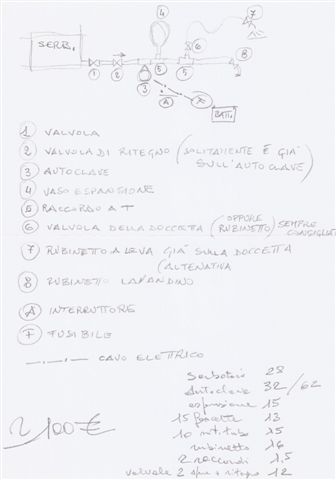 4
7
SERB.
6
8
1
2
5
5
3
A
F
BATT.
1 VALVOLA
2 VALVOLA DI RITEGNO (SOLITAMENTE È GIÀ
SULL'AUTOCLAVE)
3 AUTOCLAVE
4 VASO ESPANSIONE
5 RACCORDO A T
6 VALVOLA DELLA DOCCETTA (OPPURE
RUBINETTO) SEMPRE
CONSIGLIATA
7 RUBINETTO A LEVA GIÀ SULLA DOCCETTA
(ALTENATIVA
8 RUBINETTO LAVANDINO
A INTERRUTTORE
F FUSIBILE
CAVO ELETTRICO
Serbatoio 28
Autoclave 32/62
espansione 15
15 fascette 13
10 mt. tubo 15
rubinetto 16
2 raccordi 1,5
valvole 2 + ritegno 12
2 100 €